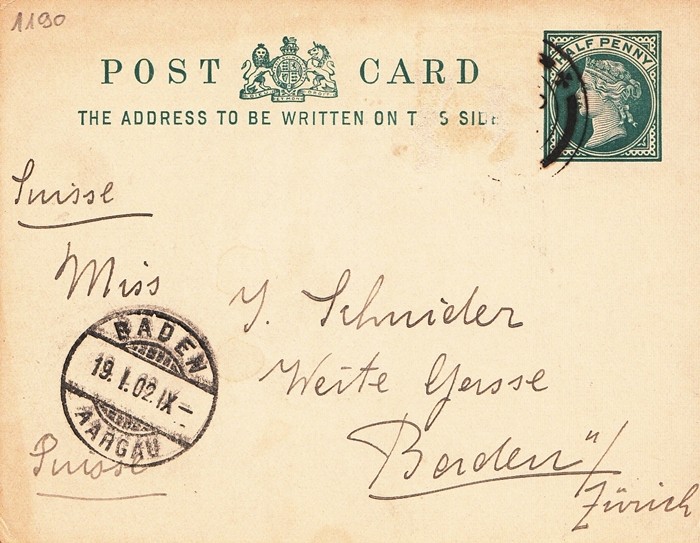 1190
POST CARD
HALF PENNY
THE ADDRESS TO BE WRITTEN ON T S SIDE
Suisse
Miss J. Schnider
Weite Gasse
Baden"/
Zürich
BADEN
19.I.02.IX-
AARGAU
Suisse